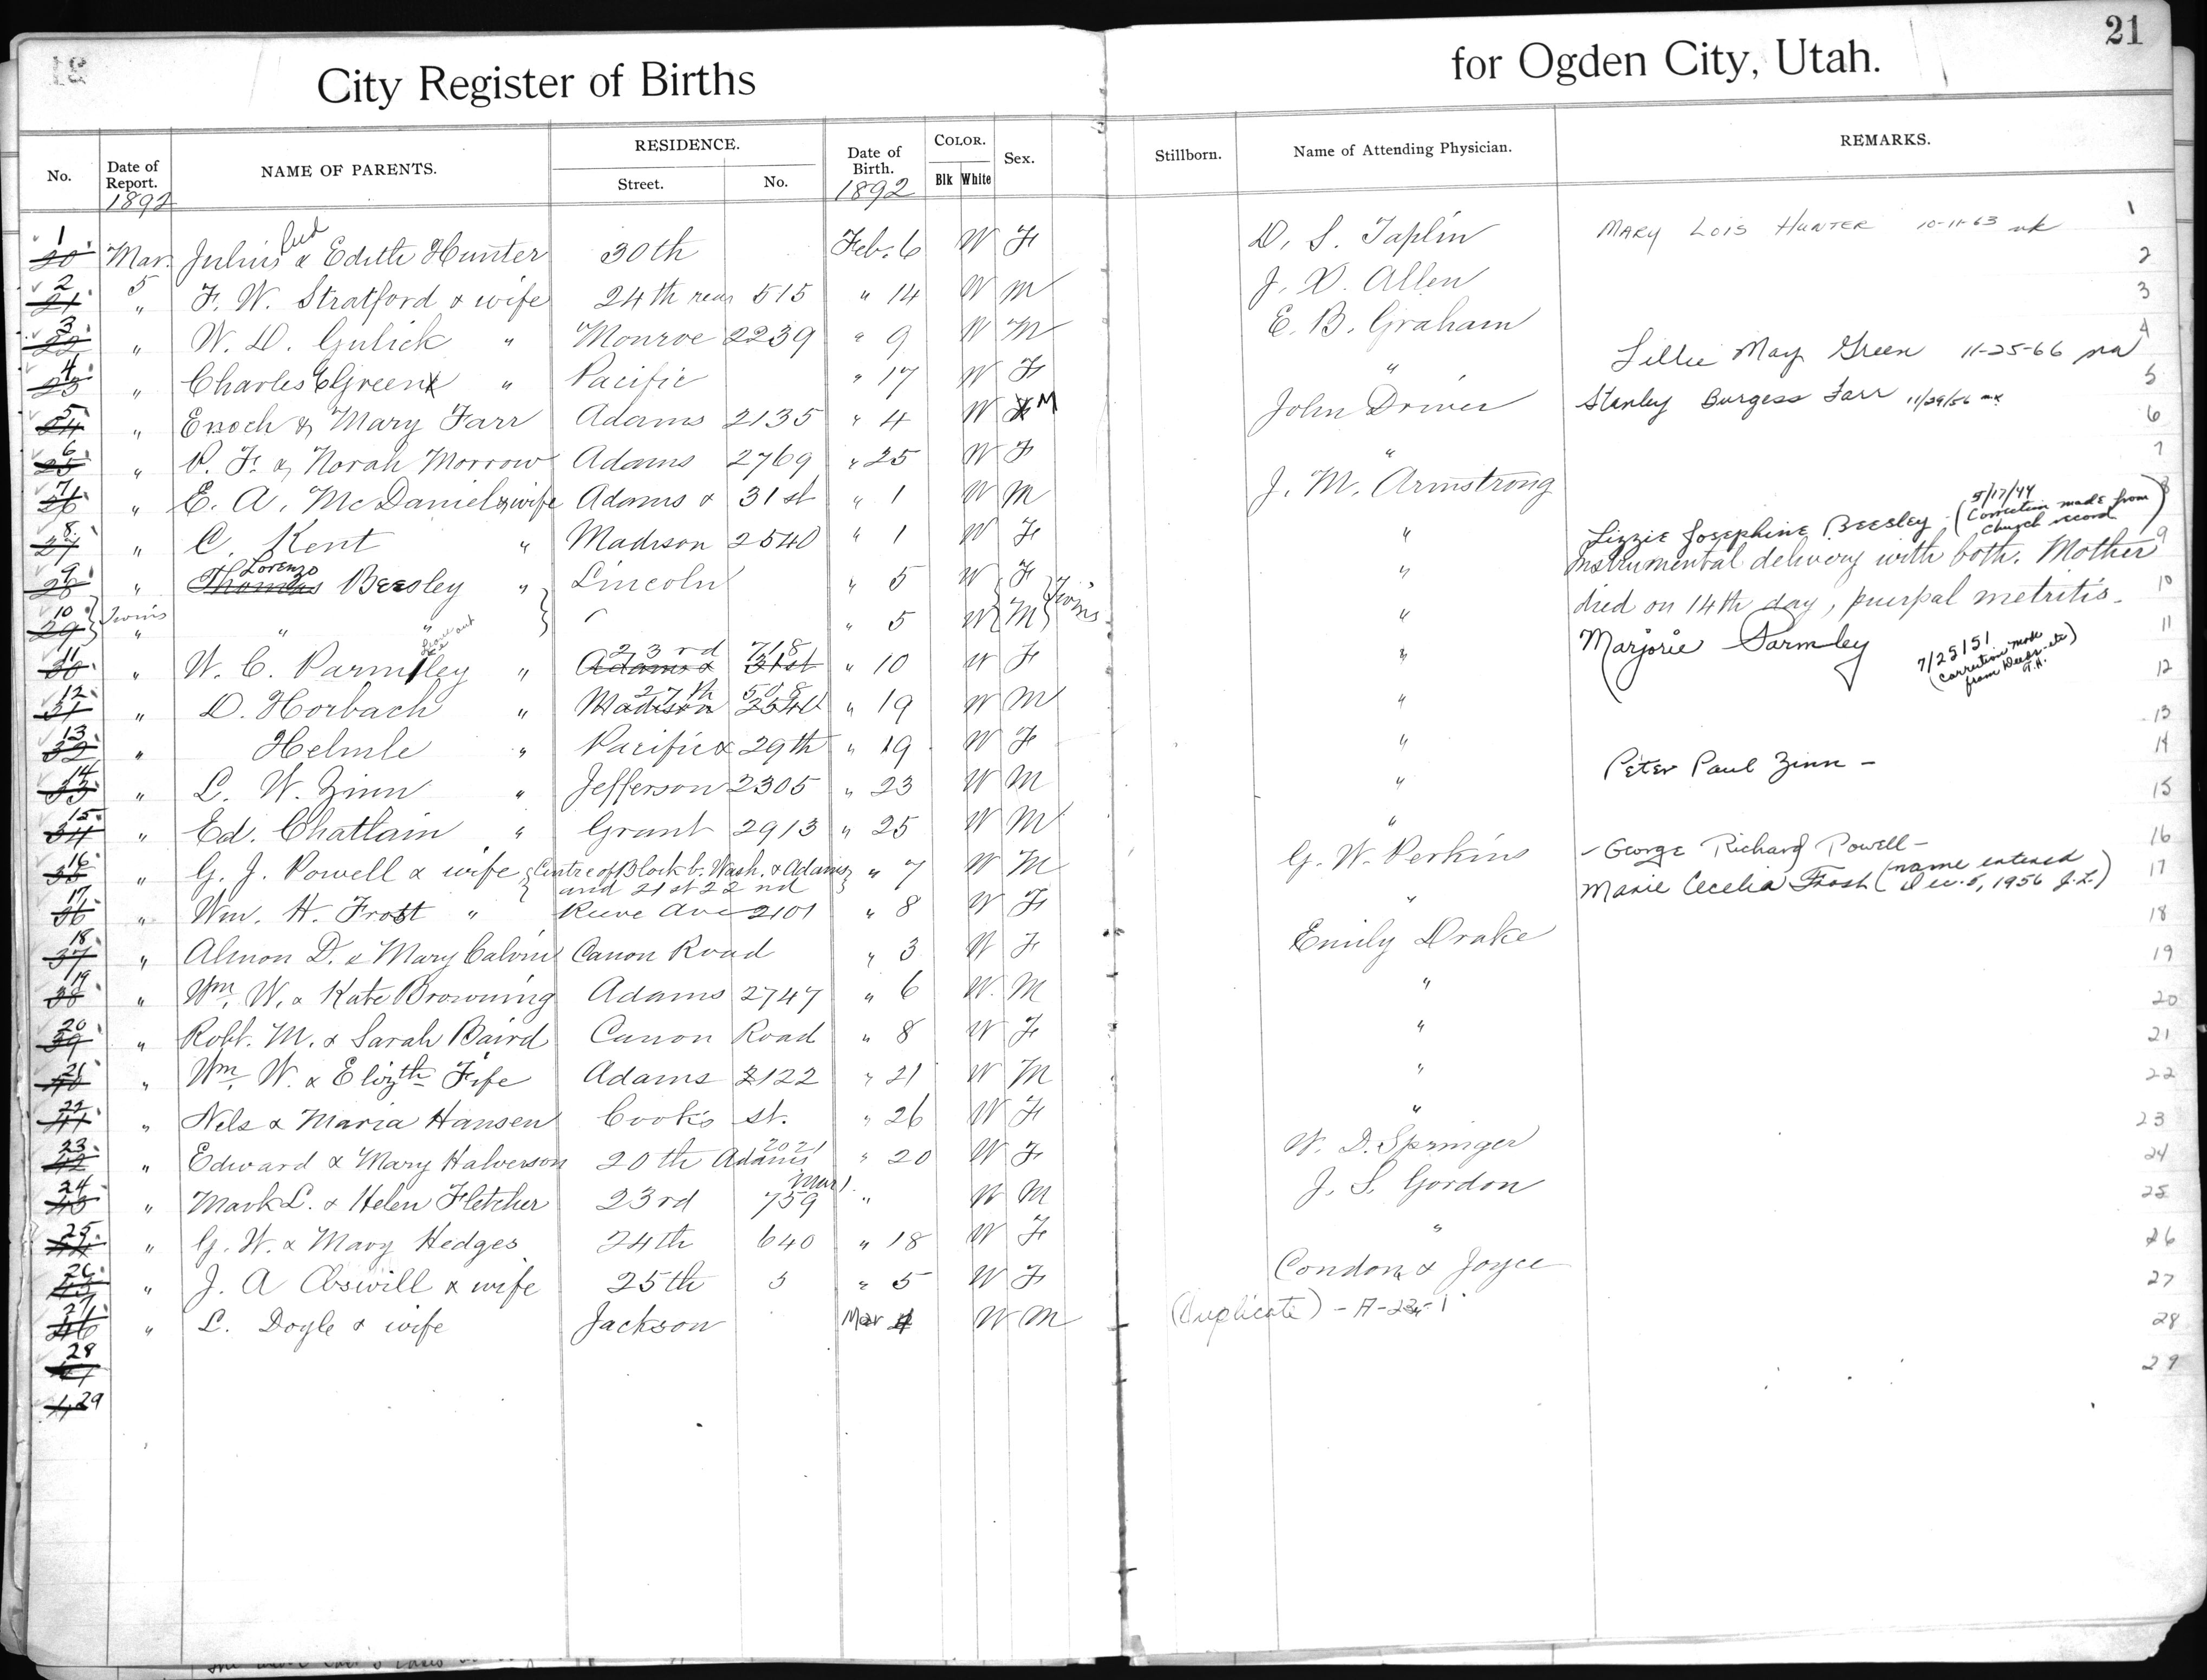 21
City Register of Births for Ogden City, Utah.
No. Date of Report. NAME OF PARENTS. RESIDENCE. Street. No. Date of Birth. COLOR. Blk White Sex. Stillborn. Name of Attending Physician. REMARKS.
1892 1892
1 20 Mar. Julius & Edith Hunter 30th Feb. 6 W F D. S. Taplin MARY LOIS HUNTER 10-11-63 1
2 21 5 " F. W. Stratford & wife 24th rear 515 " 14 W M J. D. Allen 2
3 22 " W. D. Gulick " Monroe 2239 " 9 W M E. B. Graham 3
4 23 " Charles E Green " Pacific " 17 W F " Lillie May Green 11-25-66 4
5 24 " Enoch & Mary Farr Adams 2135 " 4 W F M John Driver Stanley Burgess Farr 11/29/56 5
6 25 " P. F. & Norah Morrow Adams 2769 " 25 W F " 6
7 26 " E. A. McDaniel & wife Adams & 31st " 1 W M J. M. Armstrong 7
8 27 " C. Kent " Madison 2540 " 1 W F " 8
9 28 " Thomas Lorenzo Beesley " Lincoln " 5 W F Twins " Lizzie Josephine Beesley (5/17/44 Correction made from Church record) 9
Instrumental delivery with both. Mother
10 29 Twins " " " " 5 W M " died on 14th day, puerpal metritis. 10
11 30 " W. C. Parmley " Adams & 31st 23rd 718 " 10 W F " Marjorie Parmley 7/25/51 (Correction made from 11
12 31 " D. Horbach " Madison 2540 27th 508 " 19 W M " 12
13 32 " Helmle " Pacific & 29th " 19 W F " 13
14 33 " L. W. Zinn " Jefferson 2305 " 23 W M " Peter Paul Zinn - 14
15 34 " Ed. Chatlain " Grant 2913 " 25 W M " 15
16 35 " G. J. Powell & wife Centre of Block b. Wash. & Adams and 21st 22nd " 7 W M G. W. Perkins - George Richard Powell - 16
17 36 " Wm. H. Frost " Reeve Ave 2101 " 8 W F " Marie Cecelia Frost (name entered Dec. 5, 1956 J.L.) 17
18 37 " Almon D. & Mary Calvin Canon Road " 3 W F Emily Drake 18
19 38 " Wm. W. & Kate Browning Adams 2747 " 6 W. M " 19
20 39 " Robt. M. & Sarah Baird Canon Road " 8 W F " 20
21 40 " Wm. W. & Elizth Fife Adams 2122 " 21 W M " 21
22 41 " Nels & Maria Hansen Cook's st. " 26 W F " 22
23 42 " Edward & Mary Halverson 20th Adams 2021 " 20 W F W. D. Springer 23
24 43 " Mark L. & Helen Fletcher 23rd 759 Mar 1. " W M J. S. Gordon 24
25 44 " G. W. & Mary Hedges 24th 640 " 18 W F " 25
26 45 " J. A Coswill & wife 25th 3 " 5 W F Condon & Joyce 26
27 46 " L. Doyle & wife Jackson Mar 4 W M (Duplicate) - A-23-1 27
28 47 28
29 29